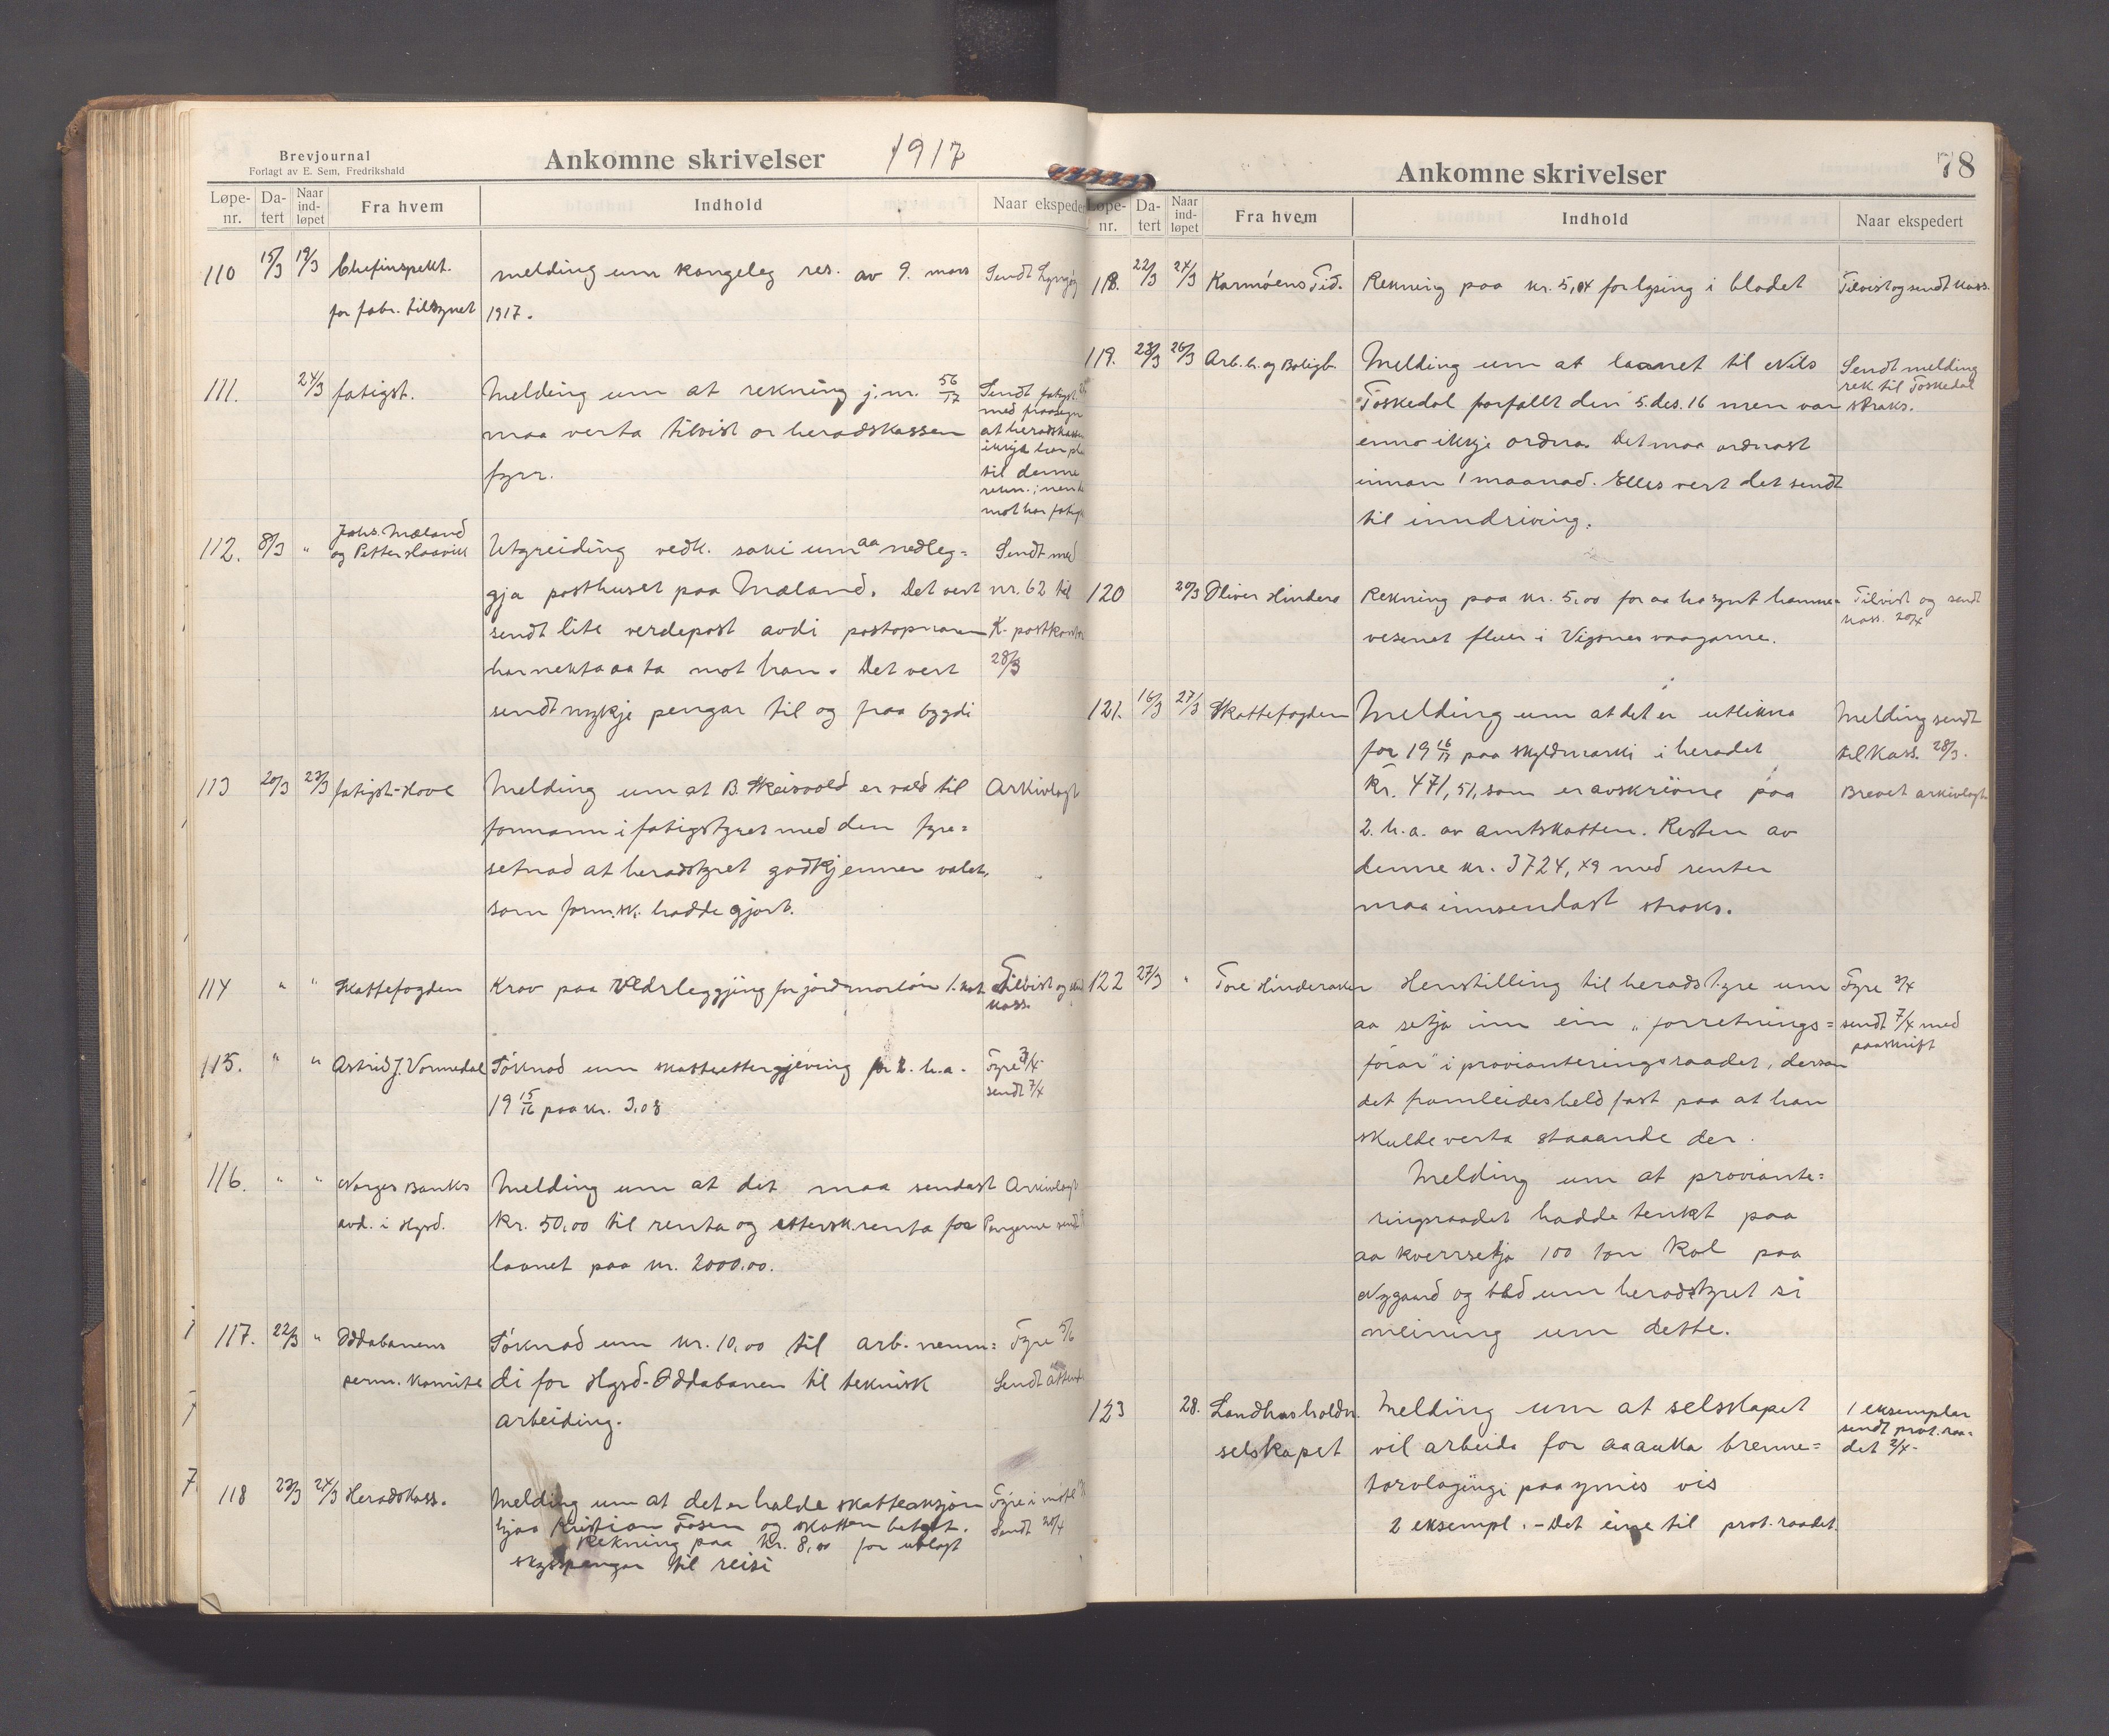 Brevjournal
Forlagt av E. Sem, Fredrikshald
Ankomne skrivelser 1917
Løpe-nr. Da-tert Naar ind-løpet Fra hvem Indhold Naar eksped
110 15/3 19/3 Chefinspekt. melding um kongeleg res. av 9. mars Sendt
for fabr. tilsynet 1917.
111. 24/3 fatigst. Melding um at rekning j.nr. 56/17 Sendt fatigst
maa verta tilvist or heradskassen med
at heradskassen
fyrr. ikkje har
til denne
rekn.
mot har
112. 8/3 " Johs. Mæland
og Petter Haavik Utgreiding vedk. saki um aa nedleg= Sendt med
gja posthuset paa Mæland. Det vert nr. 62 til
sendt lite verdepost avdi postopnaren K. postkontor
har nekta aa ta mot han. Det vert 28/3
sendt mykje pengar til og fraa bygdi
113 20/3 23/3 fatigst.-Hove Melding um at B. Skeisvold er vald til Arkivlagt
formann i fatigstyret med den fyre=
setnad at heradstyret godkjenner valet,
som form.sk. hadde gjort.
114 " " Skattefogden Krav paa vedrleggjing for jordmorløn 1. Tilvist og
kass.
115. " " Astrid J. Vormedal Søknad um skatteettergjeving for 2. h.a. Fyre 3/4
19 15/16 paa kr. 3,08 sendt 7/4
116. " " Norges Banks Melding um at det maa sendast Arkivlagt
avd. i Hgsd. Kr. 50,00 til renta og ettersk.renta for Pengerne sendt
laanet paa kr. 2000,00.
117. 22/3 " Oddabanens Søknad um kr. 10,00 til arb.nemn= Fyre 5/6
perm. komite di for Hgsd-Oddabanen til teknisk Sendt
arbeiding.
118 23/3 24/3 Heradskass. Melding um at det er halde skatteauksjon Fyre i møte
hjaa Kristian Fosen og skatten betalt. Sendt 20/4
Rekning paa kr. 8,00 for utlagt
skysspengar til reisi
Ankomne skrivelser 78
Løpe-nr. Da-tert Naar ind-løpet Fra hvem Indhold Naar ekspedert
118. 22/3 24/3 Karmøens Tid. Rekning paa kr. 5,04 for lysing i bladet Tilvist og sendt kass.
119. 23/3 26/3 Arb.br. og Boligb. Melding um at laanet til Nils Sendt melding
rek. til Toskedal
Toskedal forfallt den 5. des. 16 men var straks.
enno ikkje ordna. Det maa ordnast
innan 1 maanad. Elles vert det sendt
til inndriving.
120 20/3 Oliver Hindera Rekning paa kr. 5,00 for aa ha synt hamne= Tilvist og sendt
kass. 20/4
vesenet fluer i Vigsnes vaagarne.
121. 16/3 27/3 Skattefogden Melding um at det er utlikna Melding sendt
for 19 16/17 paa skyldmarki i heradet til Kass. 28/3.
Kr. 471,51, som er avskrivne paa Brevet arkivlagt
2. h.a. av amtskatten. Resten av
denne kr. 3724,49 med renter
maa innsendast straks.
122 27/3 " Tore Hinderaker Henstilling til heradstyre um Fyre 3/4
aa setja inn ein "forretnings= sendt 7/4 med
paaskrift
førar" i provianteringsraadet, dersom
det framleides held fast paa at han
skulde verta staaande der.
Melding um at proviante=
ringsraadet hadde tenkt paa
aa kverrsetja 100 ton kol paa
Nygaard og bad um heradstyret si
meining um dette.
123 28. Landhusholdn. Melding um at selskapet 1 eksemplar
sendt prov.raa=
selskapet vil arbeida for aa auka brenne= det 2/4.
torvlagingi paa ymis vis
2 eksempl. - Det eine til prov.raadet.